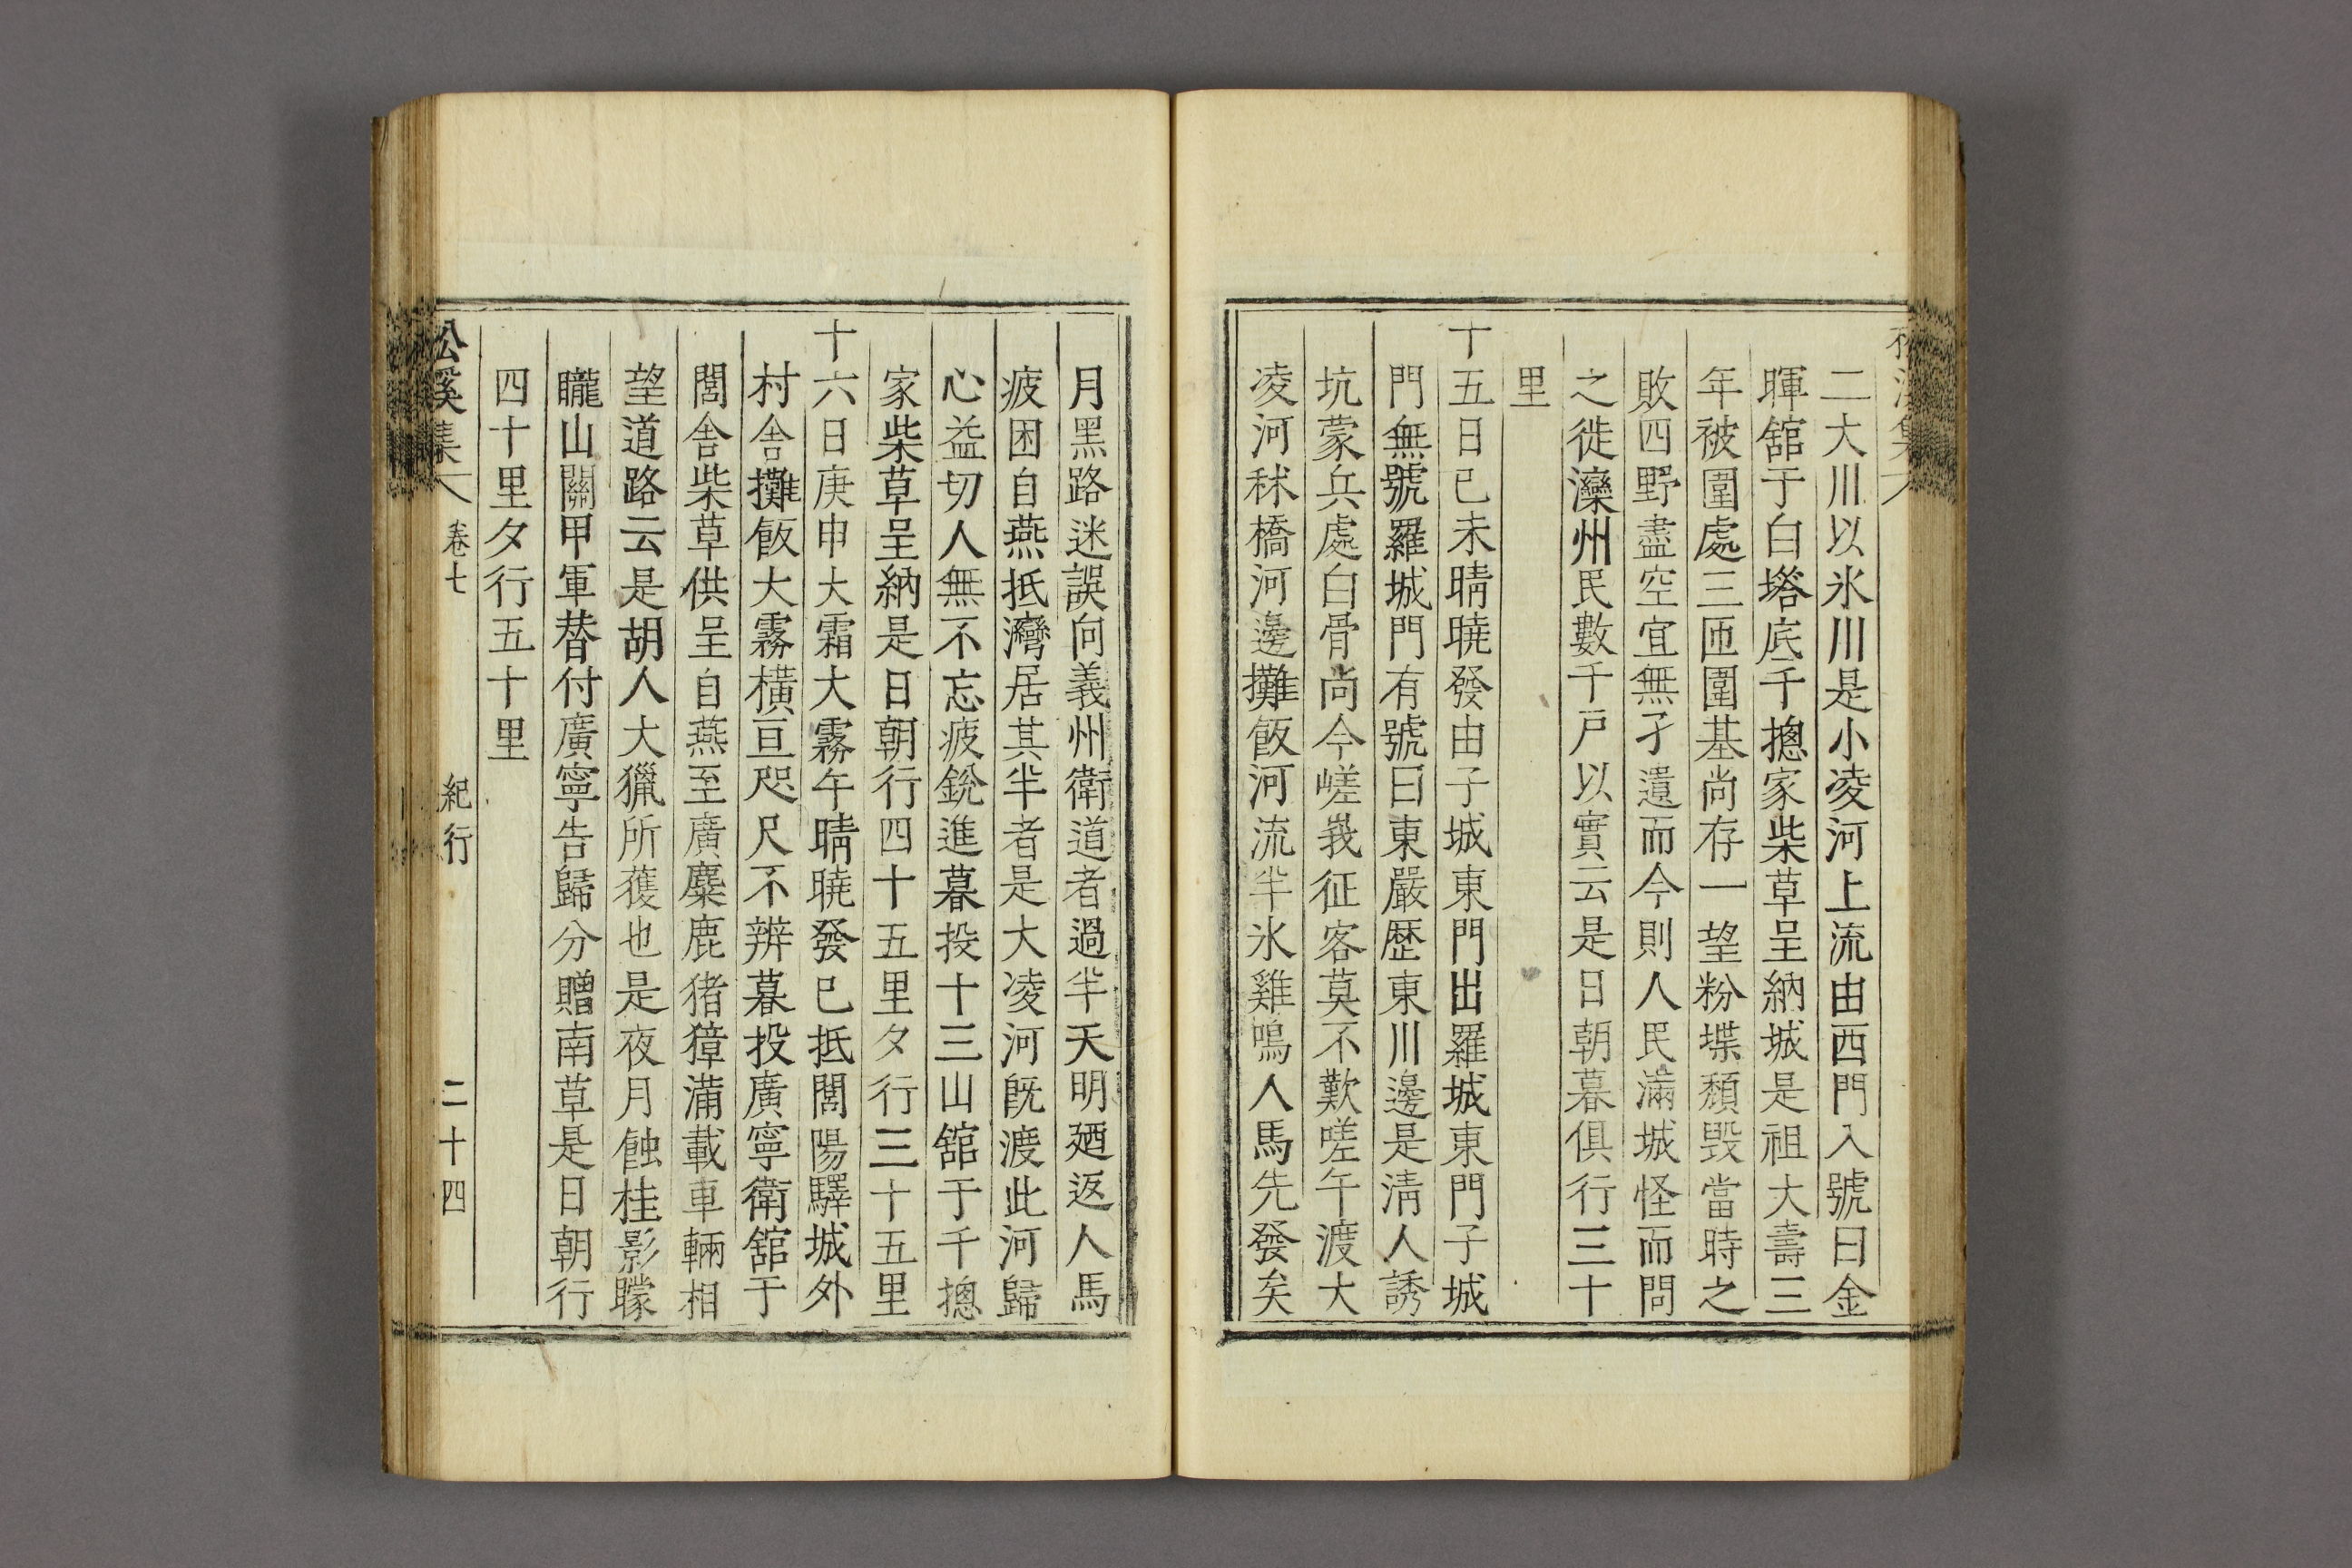 二大川以氷川是小凌河上流由西門入號曰金
暉舘于白塔底千摠家柴草呈納城是祖大壽三
年被圍處三匝圍基尚存一望粉堞頹毁當時之
敗四野盡空宜無孑遺而今則人民滿城怪而問
之徙灤州民數千戶以實云是日朝暮俱行三十
里
十五日己未晴曉發由子城東門出羅城東門子城
門無號羅城門有號曰東嚴歷東川邊是淸人誘
坑蒙兵處白骨尚今嵯峩征客莫不歎嗟午渡大
凌河秫橋河邊攤飯河流半氷雞鳴人馬先發矣
月黑路迷誤向義州衛道者過半天明廼返人馬
疲困自燕抵灣居其半者是大凌河旣渡此河歸
心益切人無不忘疲銳進暮投十三山舘于千摠
家柴草呈納是日朝行四十五里夕行三十五里
十六日庚申大霜大霧午晴曉發巳抵閭陽驛城外
村舍攤飯大霧橫亘咫尺不辨暮投廣寧衛舘于
閭舍柴草供呈自燕至廣麋鹿猪獐滿載車輛相
望道路云是胡人大獵所獲也是夜月蝕桂影矇
矓山關甲軍替付廣寧告歸分贈南草是日朝行
四十里夕行五十里
松溪集 卷七 紀行 二十四